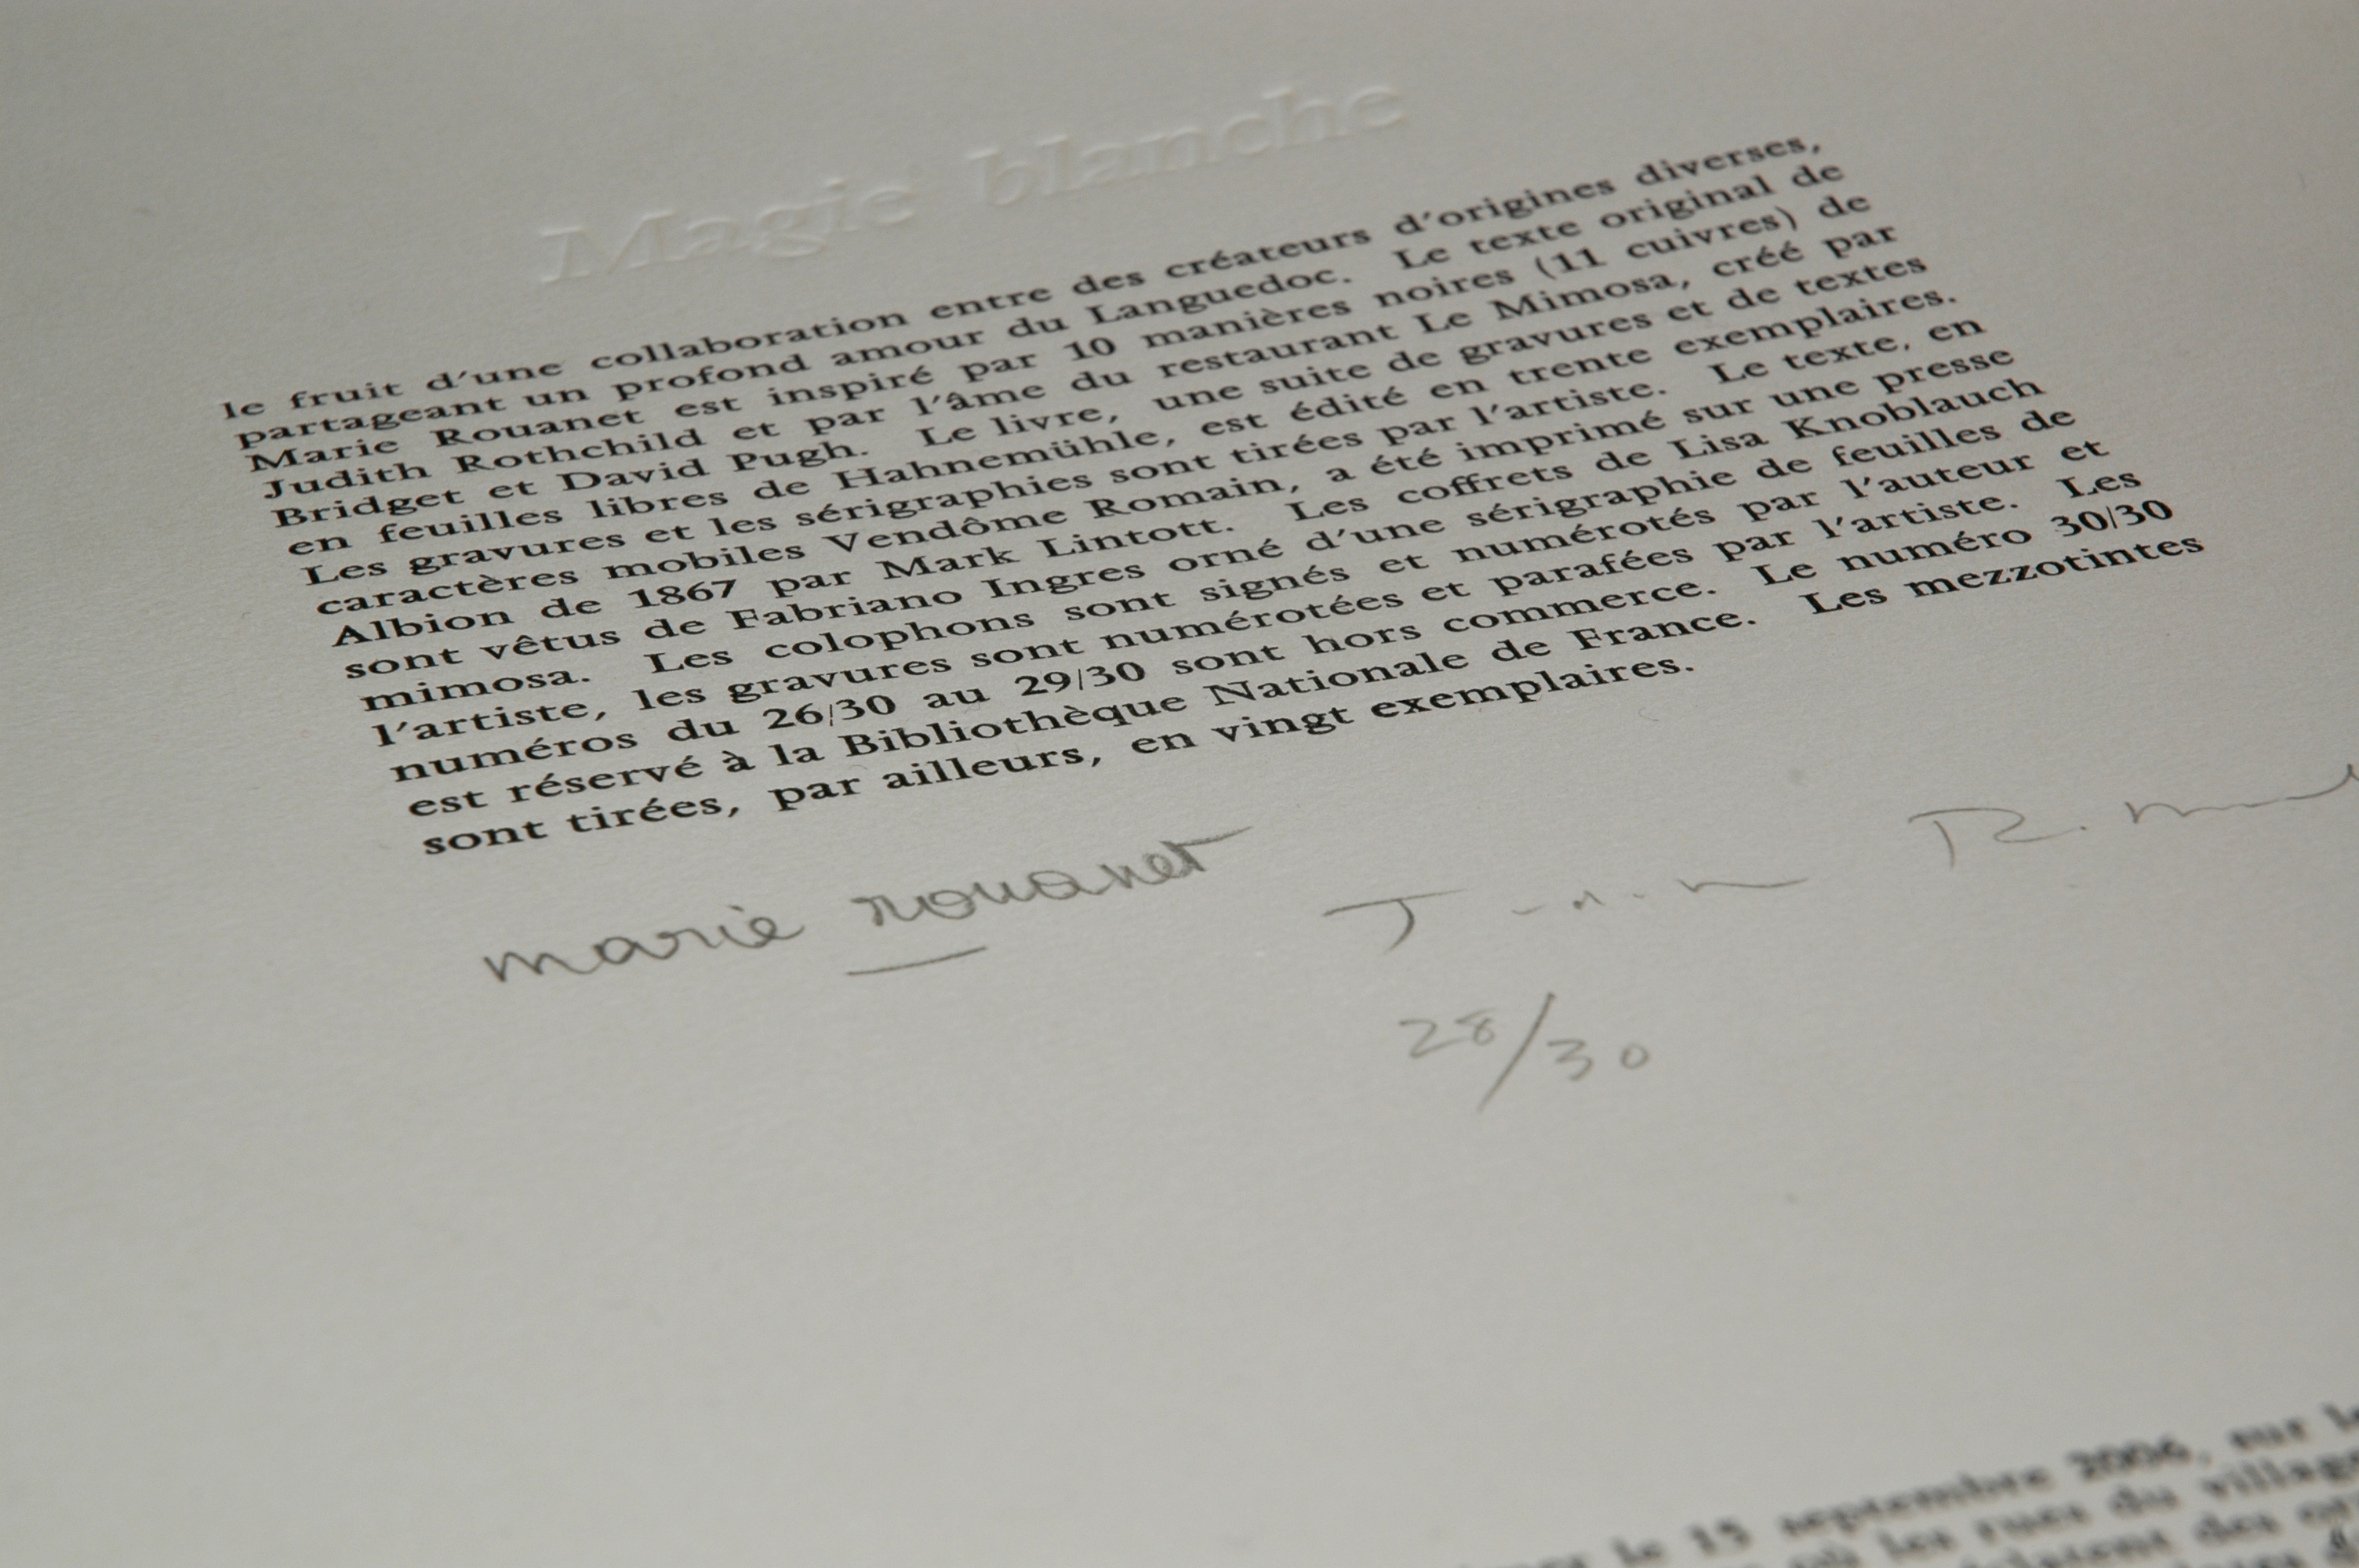 Magie blanche
le fruit d'une collaboration entre des créateurs d'origines diverses,
partageant un profond amour du Languedoc. Le texte original de
Marie Rouanet est inspiré par 10 manières noires (11 cuivres) de
Judith Rothchild et par l'âme du restaurant Le Mimosa, créé par
Bridget et David Pugh. Le livre, une suite de gravures et de textes
en feuilles libres de Hahnemühle, est édité en trente exemplaires.
Les gravures et les sérigraphies sont tirées par l'artiste. Le texte, en
caractères mobiles Vendôme Romain, a été imprimé sur une presse
Albion de 1867 par Mark Lintott. Les coffrets de Lisa Knoblauch
sont vêtus de Fabriano Ingres orné d'une sérigraphie de feuilles de
mimosa. Les colophons sont signés et numérotés par l'auteur et
l'artiste, les gravures sont numérotées et parafées par l'artiste. Les
numéros du 26/30 au 29/30 sont hors commerce. Le numéro 30/30
est réservé à la Bibliothèque Nationale de France. Les mezzotintes
sont tirées, par ailleurs, en vingt exemplaires.
marie rouanet
28/30
le 15 septembre 2006, sur
où les rues du village
des